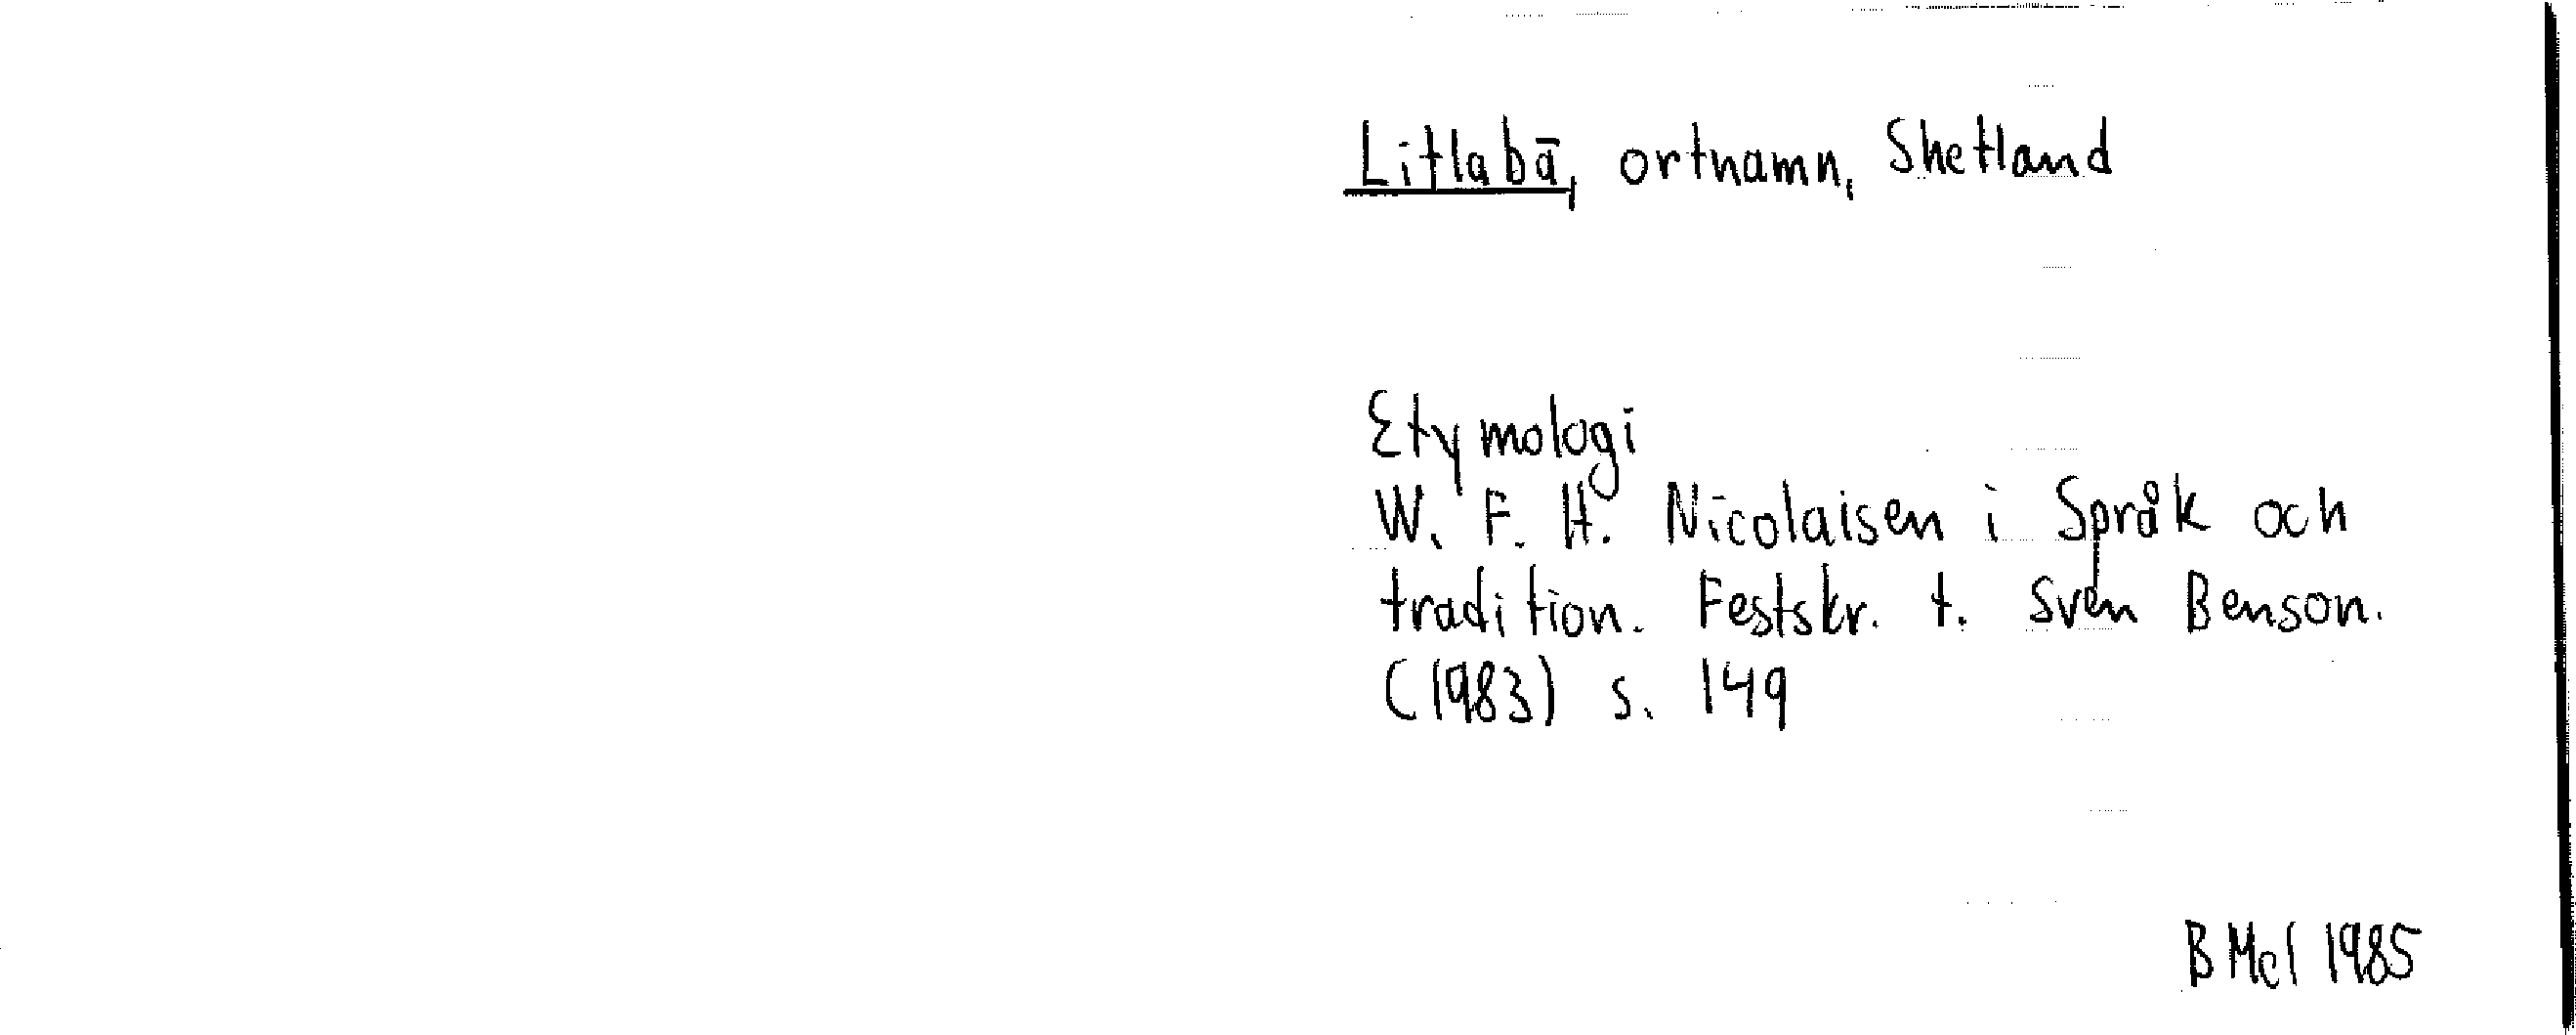 Litlabā, ortnamn, Shetland
Etymologi
W. F. H. Nicolaisen i Språk och
tradition. Festskr. t. Sven Benson.
(1983) s. 149
B Mel 1985